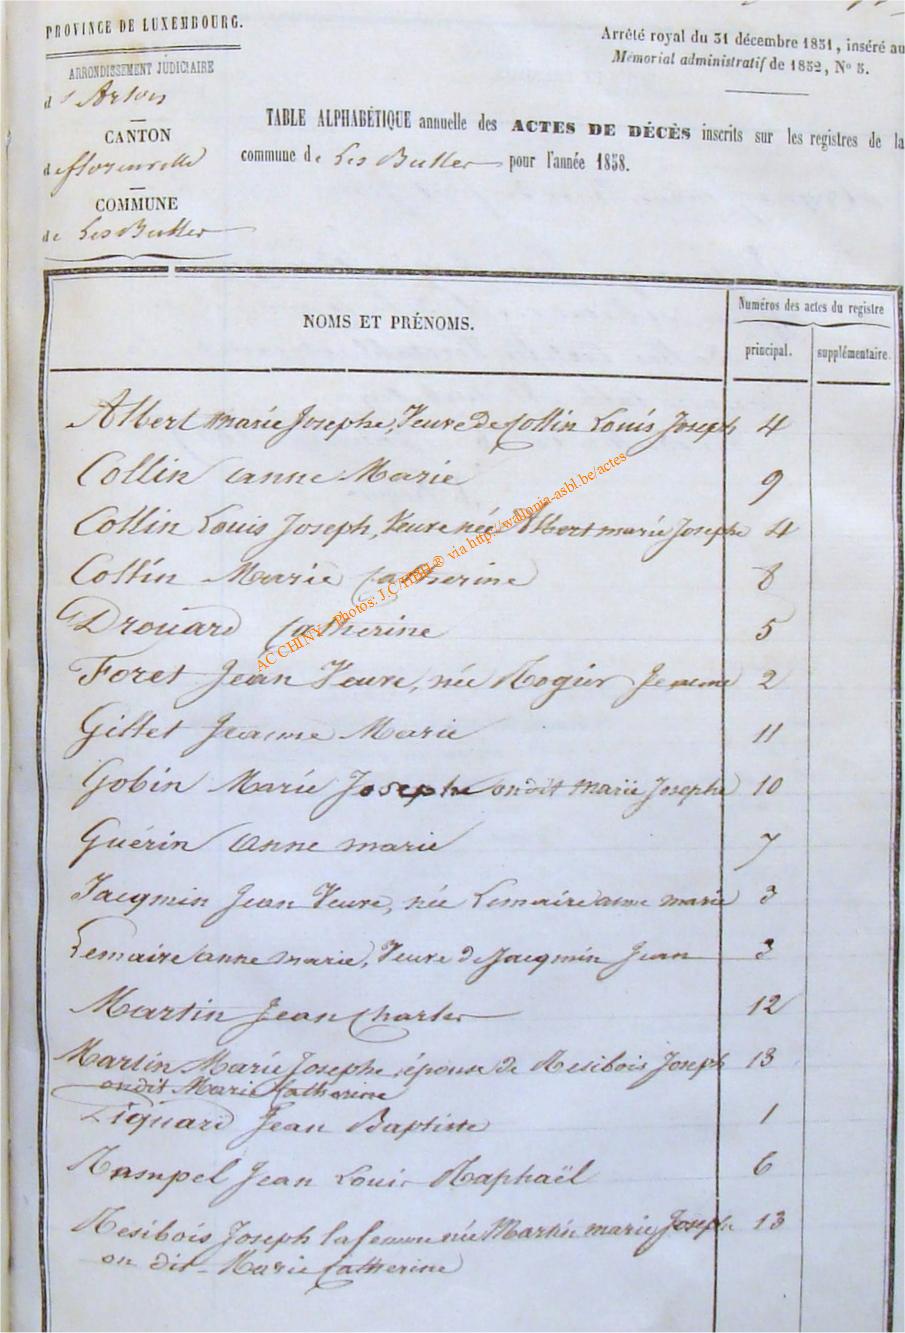 PROVINCE DE LUXEMBOURG.
ARRONDISSEMENT JUDICIAIRE
d'Arlon
CANTON
de florenville
COMMUNE
de Les Bulles
Arrêté royal du 31 décembre 1831, inséré au
Mémorial administratif de 1832, N° 3.
TABLE ALPHABÉTIQUE annuelle des ACTES DE DÉCÈS inscrits sur les registres de la
commune de Les Bulles pour l'année 1858.
NOMS ET PRÉNOMS.
Numéros des actes du registre
principal.
supplémentaire.
Albert marie Josephe, Veuve de Collin Louis Joseph 4
Collin anne Marie 9
Collin Louis Joseph, Veuve née Albert marie Josephe 4
Collin Marie Catherine 8
Drouard Catherine 5
Foret Jean Veuve, née Rogier Jeanne 2
Gillet Jeanne Marie 11
Gobin Marie Josephe on dit marie Josephe 10
Guérin anne marie 7
Jacqmin Jean Veuve, née Lemaire anne marie 3
Lemaire anne marie, Veuve de Jacqmin Jean 3
Martin Jean Charles 12
Martin Marie Josephe épouse de Resibois Joseph 13
on dit Marie Catherine
Piquard Jean Baptiste 1
Rampel Jean Louis Raphaël 6
Resibois Joseph la femme née Martin marie Josephe 13
on dit Marie Catherine
AC CHINY - Photos: J.C. HBII® via http://wallonia-asbl.be/actes